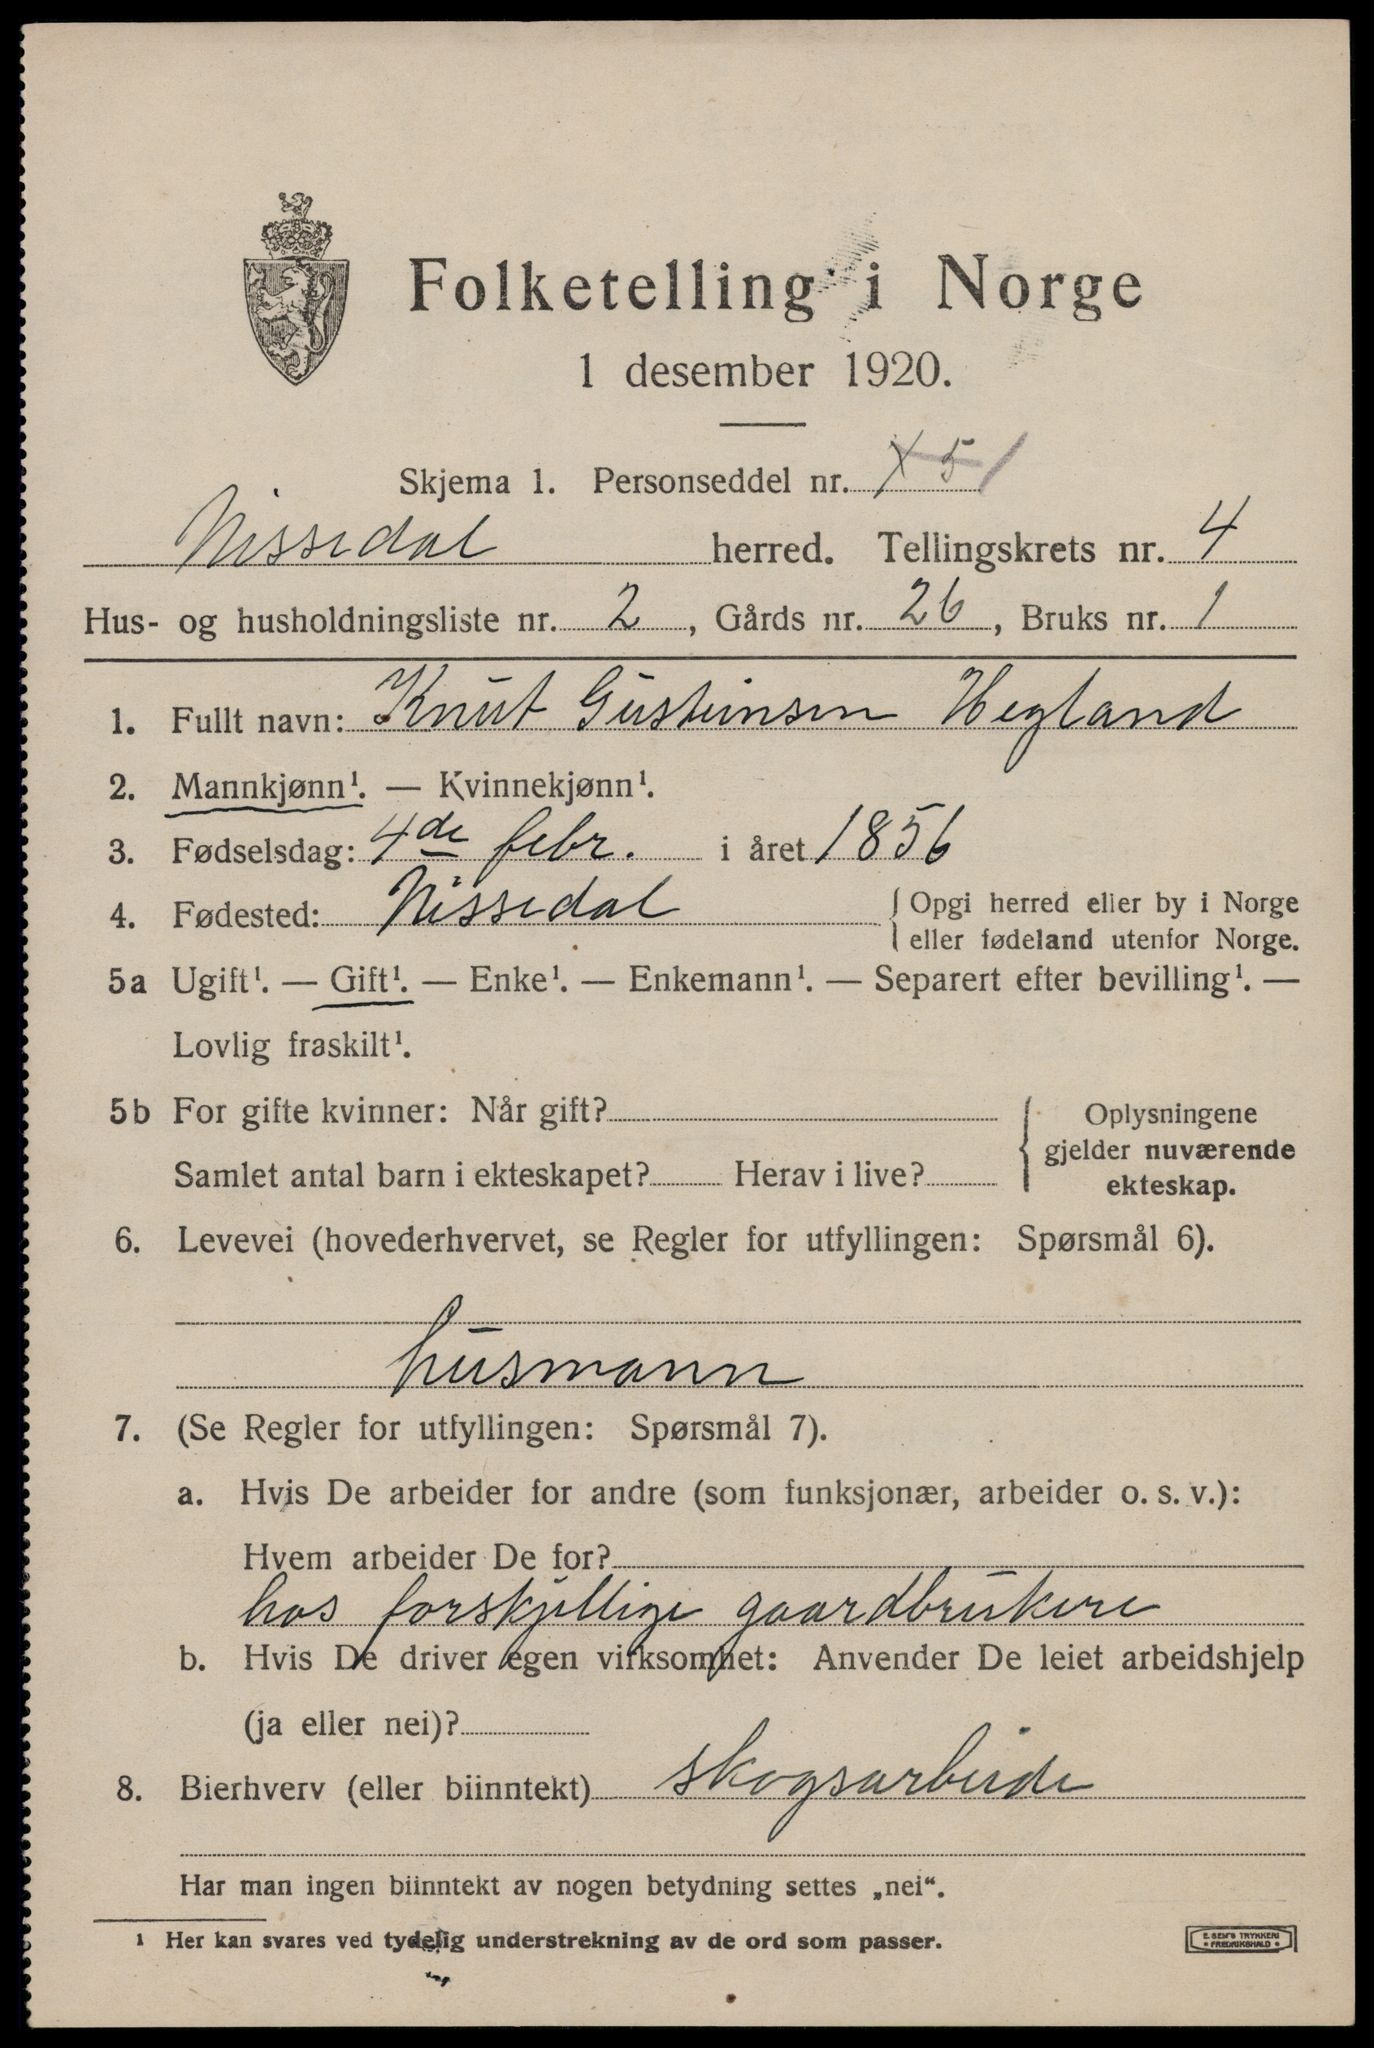 Folketelling i Norge
1 desember 1920.
Skjema 1. Personseddel nr.
Nissedal herred. Tellingskrets nr. 4
Hus- og husholdningsliste nr. 2, Gårds nr. 26, Bruks nr. 1
1. Fullt navn: Knut Gusteinsen Hegland
2. Mannkjønn¹. — Kvinnekjønn¹.
3. Fødselsdag: 4de febr. i året 1856
4. Fødested: Nissedal { Opgi herred eller by i Norge
eller fødeland utenfor Norge.
5a Ugift¹. — Gift¹. — Enke¹. — Enkemann¹. — Separert efter bevilling¹. —
Lovlig fraskilt¹.
5b For gifte kvinner: Når gift? { Oplysningene
gjelder nuværende
Samlet antal barn i ekteskapet? Herav i live? ekteskap.
6. Levevei (hovederhvervet, se Regler for utfyllingen: Spørsmål 6).
husmann
7. (Se Regler for utfyllingen: Spørsmål 7).
a. Hvis De arbeider for andre (som funksjonær, arbeider o. s. v.):
Hvem arbeider De for?
hos forskjellige gaardbrukere
b. Hvis De driver egen virksomhet: Anvender De leiet arbeidshjelp
(ja eller nei)?
8. Bierhverv (eller biinntekt) skogsarbeide
Har man ingen biinntekt av nogen betydning settes „nei“.
¹ Her kan svares ved tydelig understrekning av de ord som passer.
E. SEM'S TRYKKERI
• FREDRIKSHALD •